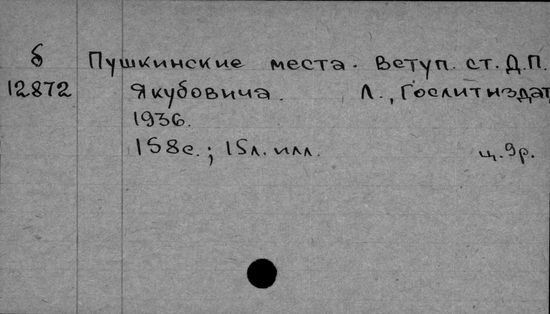 б Пушкинские места. Вступ. ст. Д.П.
12872 Якубовича. Л., Гослитиздат
1936.
158с.; 15л. илл. ц. 9р.